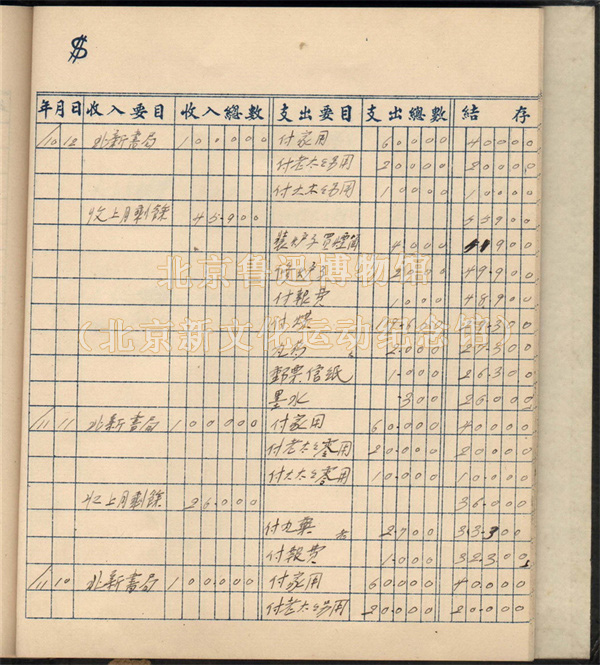 $
年 月 日 收入要目 收入總數 支出要目 支出總數 結存
10 12 北新書局 100.000 付家用 60.000 40.000
20.000 20.000
10.000 10.000
收上月剩餘 45.900 55.900
4.000 51.900
49.900
付報費 1.000 48.900
付煤
2.000 27.300
郵票信紙 1.000 26.300
墨水 .300 26.000
11 11 北新書局 100.000 付家用 60.000 40.000
付老太太零用 20.000 20.000
付大太太零用 10.000 10.000
收上月剩餘 26.000 36.000
付丸藥 2.700 33.300
付報費 1.000 32.300
11 10 北新書局 100.000 付家用 60.000 40.000
付老太太零用 20.000 20.000
北京鲁迅博物馆
（北京新文化运动纪念馆）